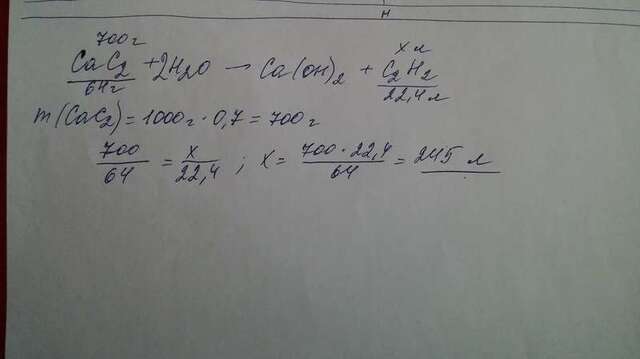 н
700 г x л
CaC₂ + 2H₂O → Ca(OH)₂ + C₂H₂
64 г 22,4 л
m(CaC₂) = 1000 г · 0,7 = 700 г
700/64 = x/22,4 ; x = 700 · 22,4/64 = 245 л